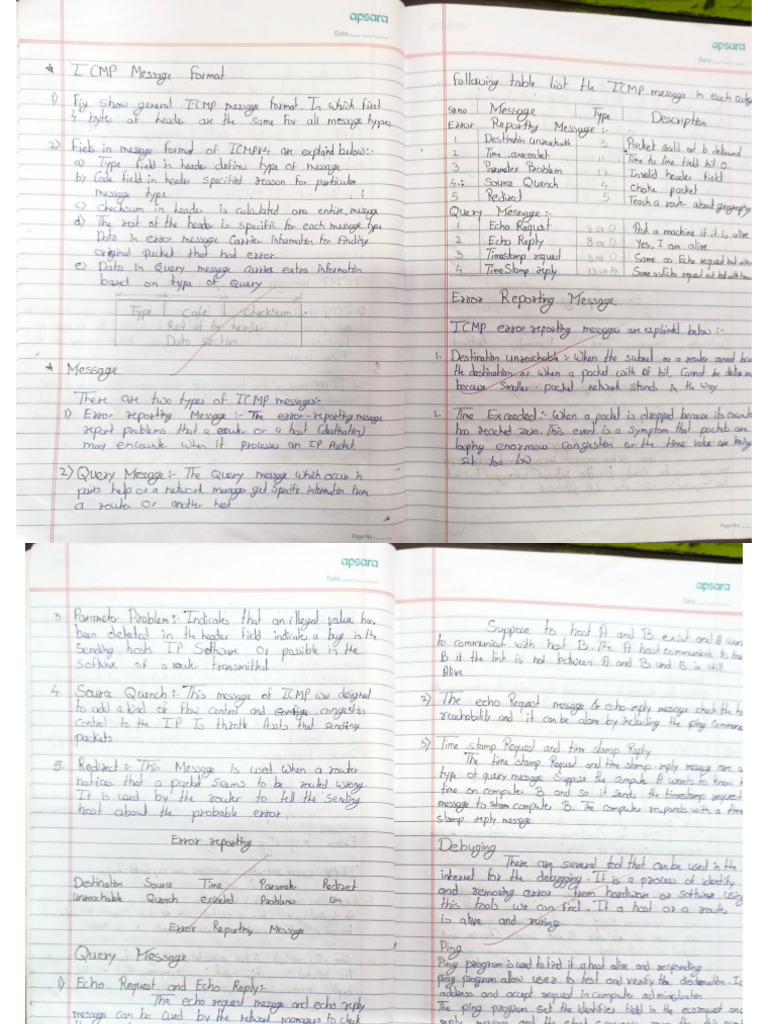 apsara
Date:
* ICMP Message Format
1) Fig show general ICMP message format. In which first
4 byte of header are the same for all message types
2) Fields in message format of ICMPV4 are explained below:-
a) Type field in header defines type of message
b) Code field in header specified reason for particular
message type
c) Checksum in header is calculated one entire message
d) The rest of the header is specific for each message type
Data in error message Carries Information for Finding
original packet that had error
e) Data in Query message carries extra information
based on type of Query
Type Code Checksum
Rest of the header
Data section
* Message
There are two types of ICMP messages:-
1) Error reporting Message :- The error-reporting message
report problems that a router or a host (destination)
may encounter when it processes an IP Packet
2) Query Message :- The Query message which occur in
pairs help or a network manager get specific information from
a router or another host
Page No:
apsara
Date:
Following table list the ICMP message in each
Sr.no Message Type Description
Error Reporting Message :-
1 Destination unreachable 3 Packet could not be delivered
2 Time exceeded 11 Time to live field hit 0
3 Parameter Problem 12 Invalid header field
4 Source Quench 4 Choke packet
5 Redirect 5 Teach a route about geography
Query Message:-
1 Echo Request 8 or 0 Ask a machine if it is alive
2 Echo Reply 8 or 0 Yes, I am alive
3 Timestamp request Same as Echo request but with
4 TimeStamp reply Same as Echo request but with time
Error Reporting Message
ICMP error reporting messages are explained below :-
1. Destination unreachable :- When the subnet or a router cannot
the destination or when a packet with DF bit, cannot be
because smaller - packet network stands in the way
2. Time Exceeded :- When a packet is dropped because its counter
has reached zero. This event is a Symptom that packets are
enormous Congestion or the time value are being
set too low
Page No:
apsara
Date:
3 Parameter Problem :- Indicates that an illegal value has
been detected in the header field indicate a bug in the
sending hosts IP Software or possible in the
Software of a router transmitted.
4. Source Quench :- This message of ICMP was designed
to add a kind of flow control and congestion
control to the IP Is that sending
packets
5. Redirect :- This Message is used when a router
notices that a packet seems to be routed wrong.
It is used by the router to tell the sending
host about the probable error.
Error reporting
Destination Source Time Parameter Redirect
unreachable Quench exceeded Problems
Error Reporting Message
Query Message
1) Echo Request and Echo Reply :-
The echo request message and echo reply
message can be used by the network managers to check
apsara
Date:
Suppose to host A and B exist and A
to communicate with host B. The A host communicate to
B if the link is not between A and B and B is still
Alive
2) The echo Request message & echo-reply message check the
reachability and it can be done by including the ping command
3) Time stamp Request and time stamp Reply
The time stamp Request and time stamp reply message are a
type of query message Suppose the compute A wants to know
time on computer B and so it sends the timestamp request
message to computer B. The computer responds with a time
stamp reply message
Debuging
There are several tool that can be used in the
internet for the debugging. It is a process of identify
and removing error from hardware or software using
this tools we can find. If a host or a route
is alive and runing
Ping
Ping program is used to find if a host alive and responding
ping program allow user to test and verify the destination.
address and accept request in computer administrator
The ping program set the identifies field in the